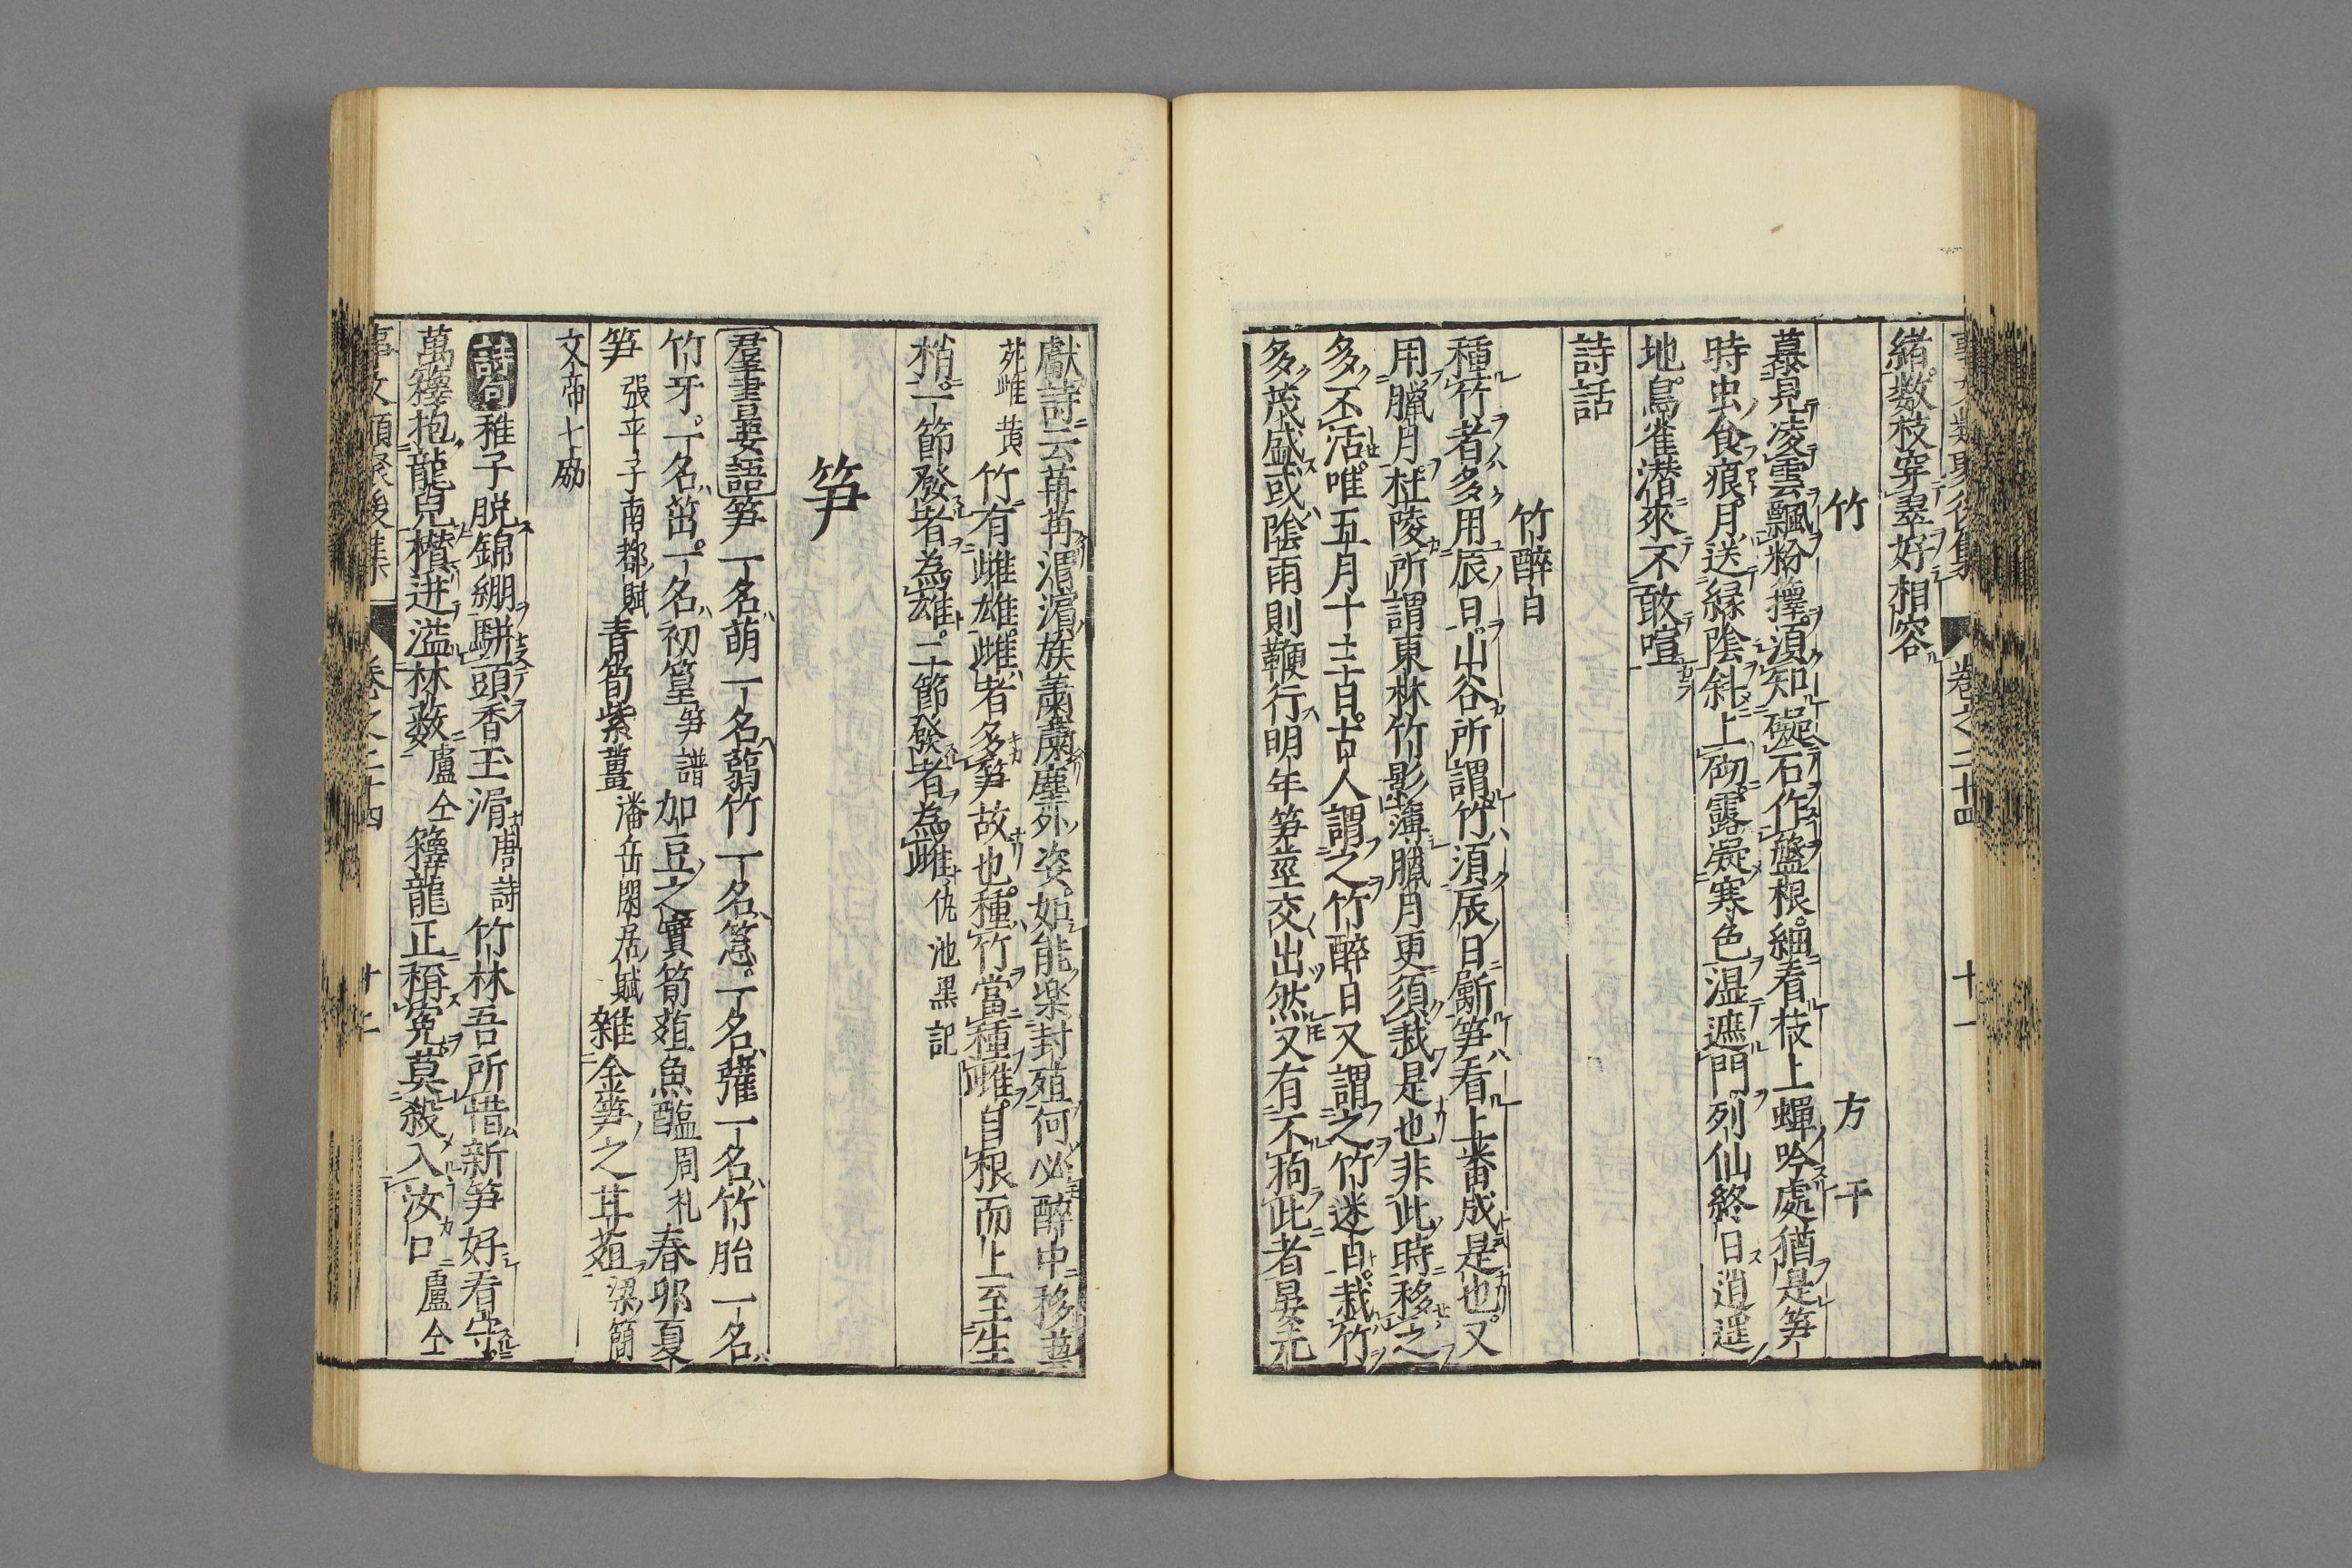 緒数枝穿翠好相容
竹 方干
暮見凌雲飄粉籜須知礙石作盤根細看枝上蟬吟處猶是笋
時虫食痕月送緑陰斜上砌露凝寒色湿遮門列仙終日逍遥
地鳥雀潜來不敢喧
詩話
竹醉日
種竹者多用辰日山谷所謂竹須辰日斸笋看上番成是也又
用臘月杜陵所謂東林竹影薄臘月更須栽是也非此時移之
多不活唯五月十三日古人謂之竹醉日又謂之竹迷日栽竹
多茂盛或陰雨則鞭行明年笋莖交出然又有不拘此者晏元
獻詩云苒苒渭濱族蕭蕭塵外姿如能樂封殖何必醉中移蓺
苑雌黄 竹有雌雄雌者多笋故也種竹當種雌自根而上至生
梢一節發者為雄二節發者為雌 仇池黒記
笋
羣書要語 笋一名萌一名蒻竹一名䈚一名虇一名竹胎一名
竹牙一名茁一名初篁 笋譜 加豆之實筍菹魚醢 周礼 春卵夏
笋 張平子南都賦 青筍紫薑 潘岳閑居賦 雜金笋之甘菹 梁簡
文帝七勵
詩句 稚子脱錦綳駢頭香玉滑 唐詩 竹林吾所惜新笋好看守
萬籜抱龍兒攅迸溢林薮 盧仝 籜龍正稱冤莫殺入汝口 盧仝
事文類聚後集 卷之二十四 十二